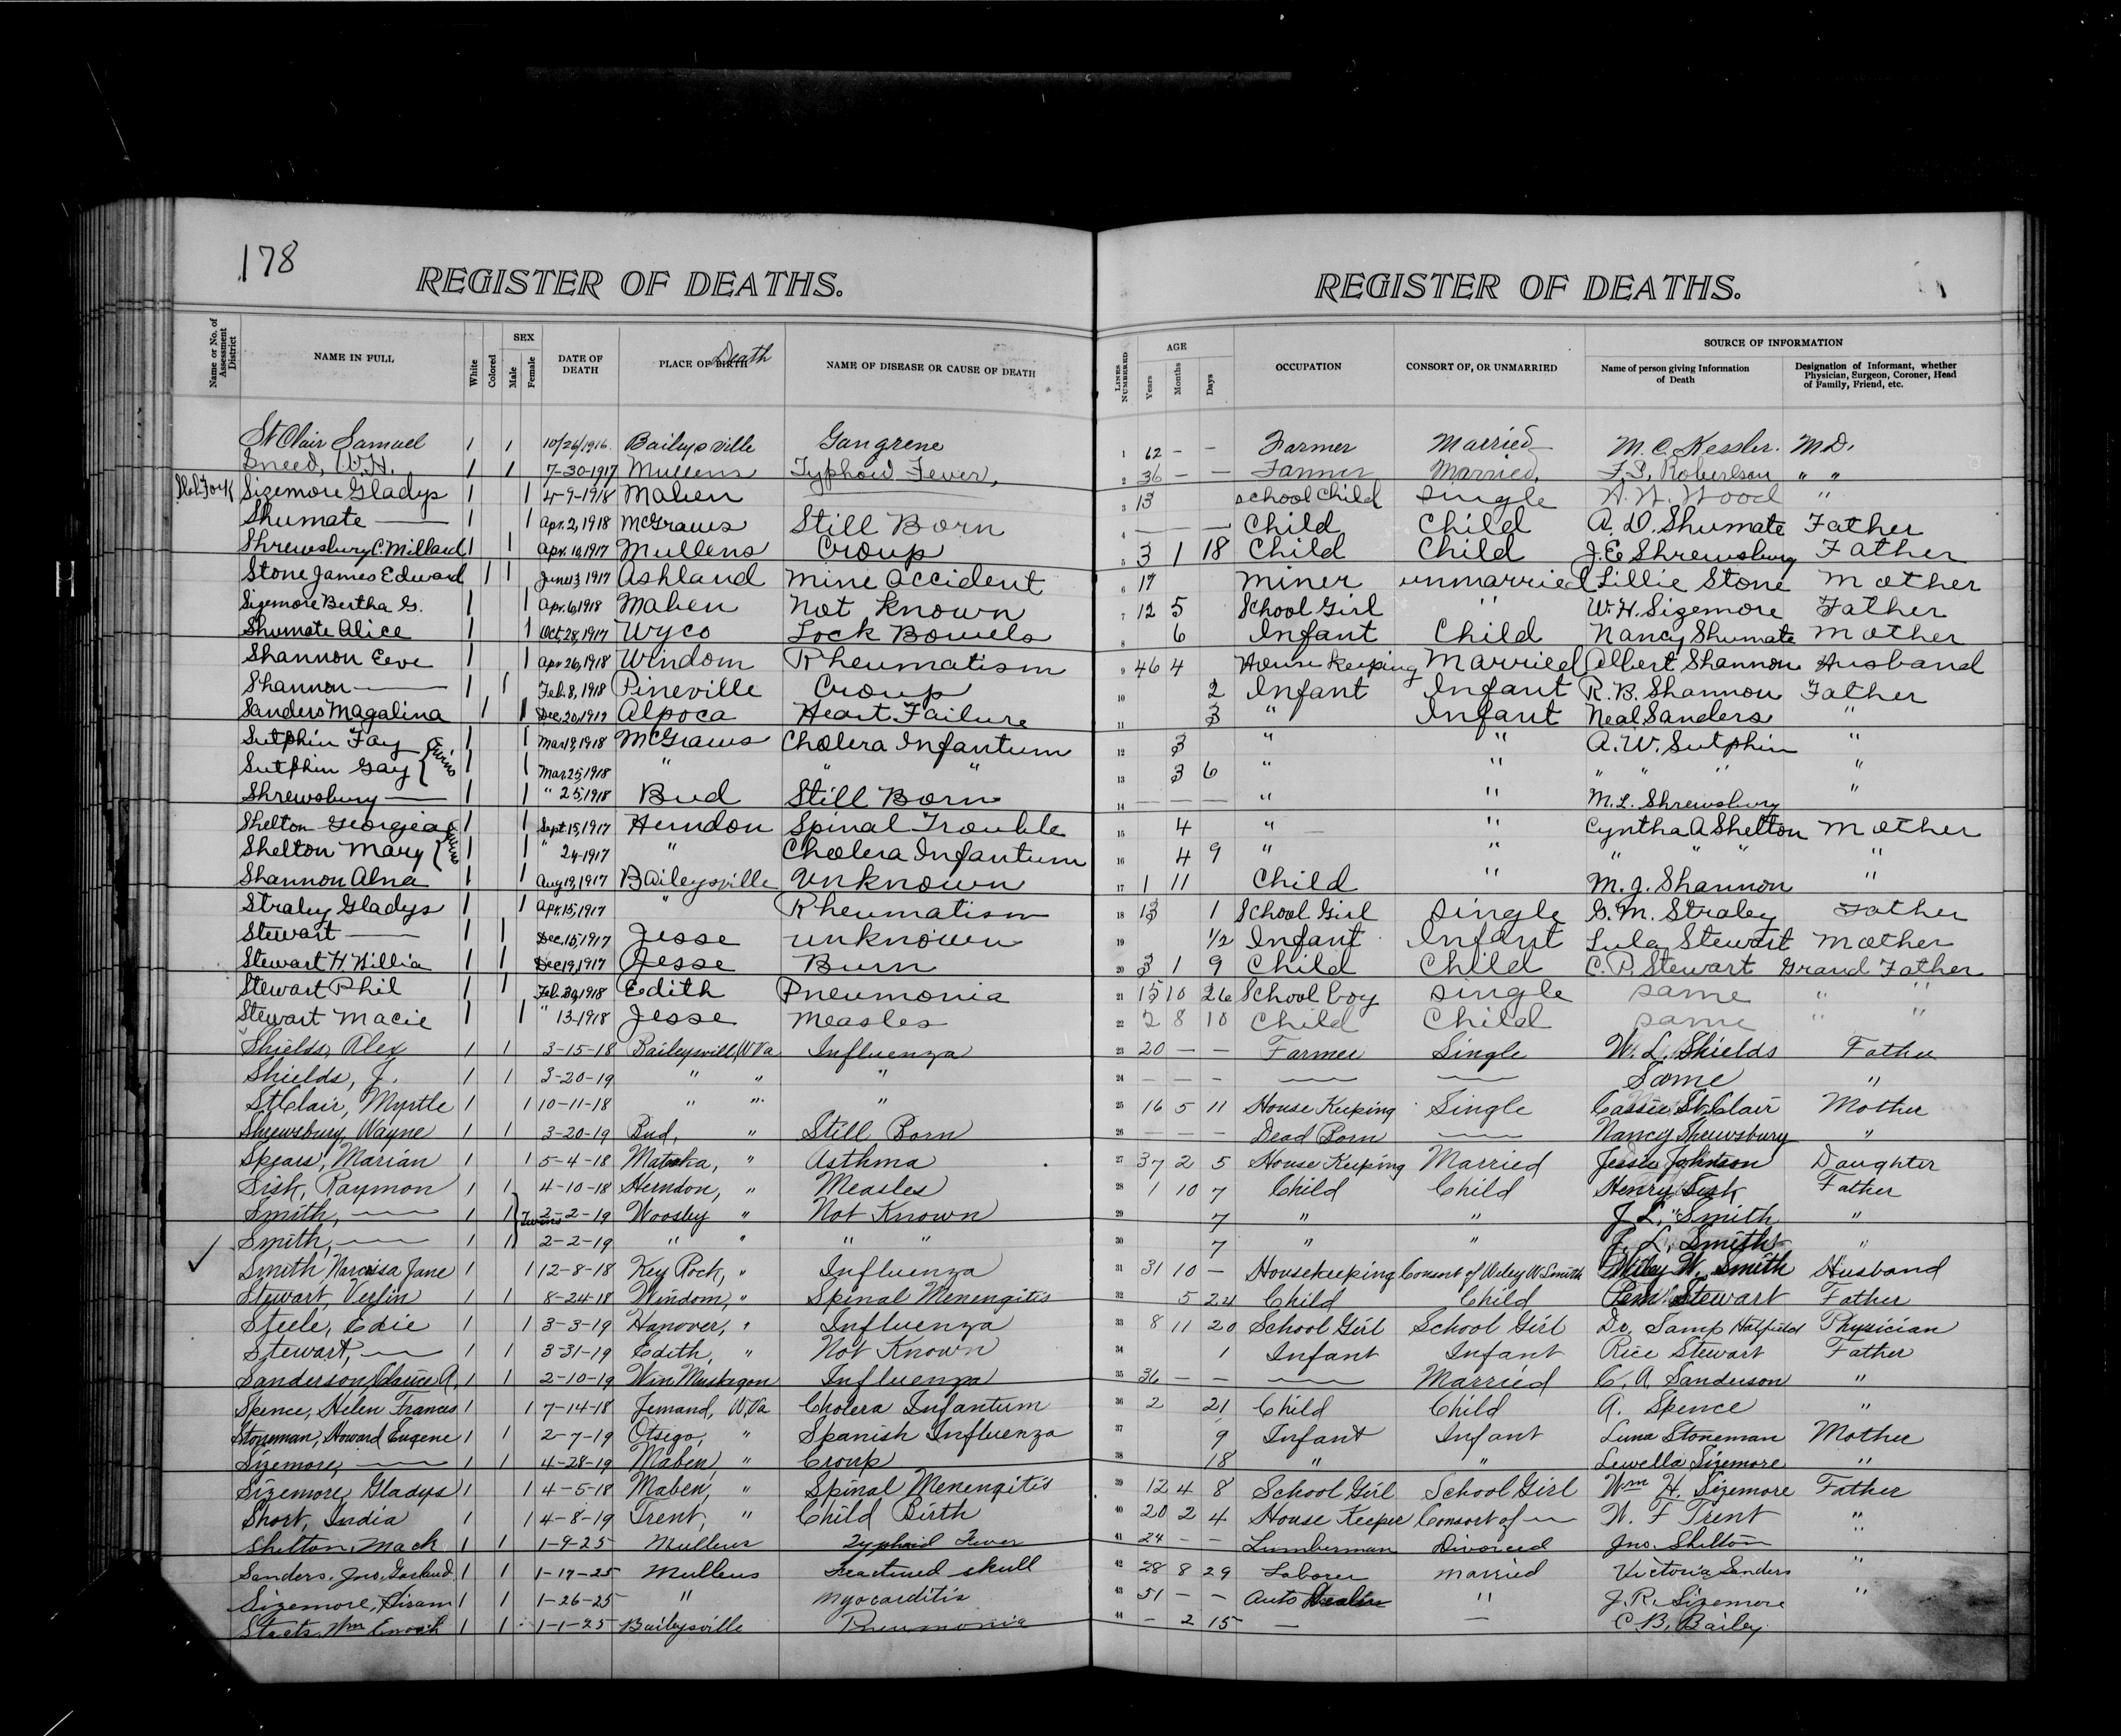 178
REGISTER OF DEATHS.
Name or No. of Assessment District
NAME IN FULL
White
Colored
SEX
Male
Female
DATE OF DEATH
PLACE OF BIRTH Death
NAME OF DISEASE OR CAUSE OF DEATH
St Clair Samuel 1 1 10/26/1916 Baileysville Gangrene
Sneed, W.H. 1 1 7-30-1917 Mullens Typhoid Fever,
Slab Fork Sizemore Gladys 1 1 4-9-1918 Maben
Shumate — 1 1 Apr. 2, 1918 McGraws Still Born
Shrewsbury C. Millard 1 1 Apr. 10, 1917 Mullens Croup
Stone James Edward 1 1 June 13, 1917 Ashland Mine Accident
Sizemore Bertha G. 1 1 Apr. 6, 1918 Maben Not Known
Shumate Alice 1 1 Oct. 28, 1917 Wyco Lock Bowels
Shannon Eeve 1 1 Apr 26, 1918 Windom Rheumatism
Shannon — 1 1 Feb. 8, 1918 Pineville Croup
Sanders Magalina 1 1 Dec. 20, 1917 Alpoca Heart Failure
Sutphin Fay 1 1 Mar 19, 1918 McGraws Cholera Infantum
Twins
Sutphin Gay 1 1 Mar. 25, 1918 " " "
Shrewsbury — 1 1 " 25, 1918 Bud Still Born
Shelton Georgia 1 1 Sept. 15, 1917 Herndon Spinal Trouble
Twins
Shelton Mary 1 1 " 24-1917 " Cholera Infantum
Shannon Alna 1 1 Aug 19, 1917 Baileysville Unknown
Straley Gladys 1 1 Apr. 15, 1917 " Rheumatism
Stewart — 1 1 Dec. 15, 1917 Jesse unknown
Stewart H. Willia 1 1 Dec 19, 1917 Jesse Burn
Stewart Phil 1 1 Feb. 1918 Edith Pneumonia
Stewart Macie 1 1 " 13-1918 Jesse Measles
Shields, Alex 1 1 3-15-18 Baileysville, W Va Influenza
Shields, J. 1 1 3-20-19 " " "
St Clair, Myrtle 1 1 10-11-18 " " "
Shrewsbury, Wayne 1 1 3-20-19 Bud, " Still Born
Spears, Marian 1 1 5-4-18 Matoka, " Asthma
Sisk, Raymon 1 1 4-10-18 Herndon, " Measles
Smith, — 1 1 Twins 2-2-19 Woosley " Not Known
Smith, — 1 1 2-2-19 " " " "
Smith, Narcissa Jane 1 1 12-8-18 Key Rock, " Influenza
Stewart, Verlin 1 1 8-24-18 Windom, " Spinal Menengitis
Steele, Edie 1 1 3-3-19 Hanover, " Influenza
Stewart, — 1 1 3-31-19 Edith, " Not Known
Sanderson, A. 1 1 2-10-19 Muskegon Influenza
Spence, Helen Frances 1 1 7-14-18 Jemand, W Va Cholera Infantum
Stoneman, Howard Eugene 1 1 2-7-19 Otsego, " Spanish Influenza
Sizemore, — 1 1 4-28-19 Maben, " Croup
Sizemore, Gladys 1 1 4-5-18 Maben, " Spinal Menengitis
Short, India 1 1 4-8-19 Trent, " Child Birth
Shelton, Mack 1 1 1-9-25 Mullens Typhoid Fever
Sanders, Jno. Garland 1 1 1-17-25 Mullens Fractured skull
Sizemore, Hiram 1 1 1-26-25 " Myocarditis
Wm Enoch 1 1 1-1-25 Baileysville Pneumonia
REGISTER OF DEATHS.
LINES NUMBERED
AGE
Years
Months
Days
OCCUPATION
CONSORT OF, OR UNMARRIED
SOURCE OF INFORMATION
Name of person giving Information of Death
Designation of Informant, whether Physician, Surgeon, Coroner, Head of Family, Friend, etc.
1 62 — — Farmer Married M. C. Kessler. M.D.
2 36 — — Farmer Married, F. S. Robertson " "
3 13 School Child Single W. W. Wood "
4 — — — Child Child A. D. Shumate Father
5 3 1 18 Child Child J. E. Shrewsbury Father
6 17 Miner unmarried Lillie Stone Mother
7 12 5 School Girl " W. H. Sizemore Father
8 6 Infant Child Nancy Shumate Mother
9 46 4 House Keeping Married Albert Shannon Husband
10 2 Infant Infant R. B. Shannon Father
11 3 " Infant Neal Sanders "
12 3 " " A. W. Sutphin "
13 3 6 " " " " " "
14 — — — " " M. L. Shrewsbury "
15 4 " " Cyntha A Shelton Mother
16 4 9 " " " " " "
17 1 11 Child " M. J. Shannon "
18 13 1 School Girl Single G. M. Straley Father
19 1/2 Infant Infant Lula Stewart Mother
20 3 1 9 Child Child C. P. Stewart Grand Father
21 15 10 26 School boy Single same " "
22 2 8 10 Child Child same " "
23 20 — — Farmer Single W. L. Shields Father
24 — — — — — Same "
25 16 5 11 House Keeping Single Cassie St. Clair Mother
26 — — — Dead Born — Nancy Shewsbury "
27 37 2 5 House Keeping Married Jessie Johnson Daughter
28 1 10 7 Child Child Henry Sisk Father
29 7 " " J. L. Smith "
30 7 " " J. L. Smith "
31 31 10 — Housekeeping Consort of Wiley W Smith Wiley W. Smith Husband
32 5 24 Child Child Pem Stewart Father
33 8 11 20 School Girl School Girl Dr. Samp Hatfield Physician
34 1 Infant Infant Rice Stewart Father
35 36 — — — Married C. A. Sanderson "
36 2 21 Child Child A. Spence "
37 9 Infant Infant Luna Stoneman Mother
38 18 " " Luwella Sizemore "
39 12 4 8 School Girl School Girl Wm H. Sizemore Father
40 20 2 4 House Keeper Consort of — W. F Trent "
41 24 — — Lumberman Divorced Jno. Shelton "
42 28 8 29 Laborer Married Victoria Sanders "
43 51 — — Auto Dealer " J. R. Sizemore "
44 — 2 15 — — C. B. Bailey